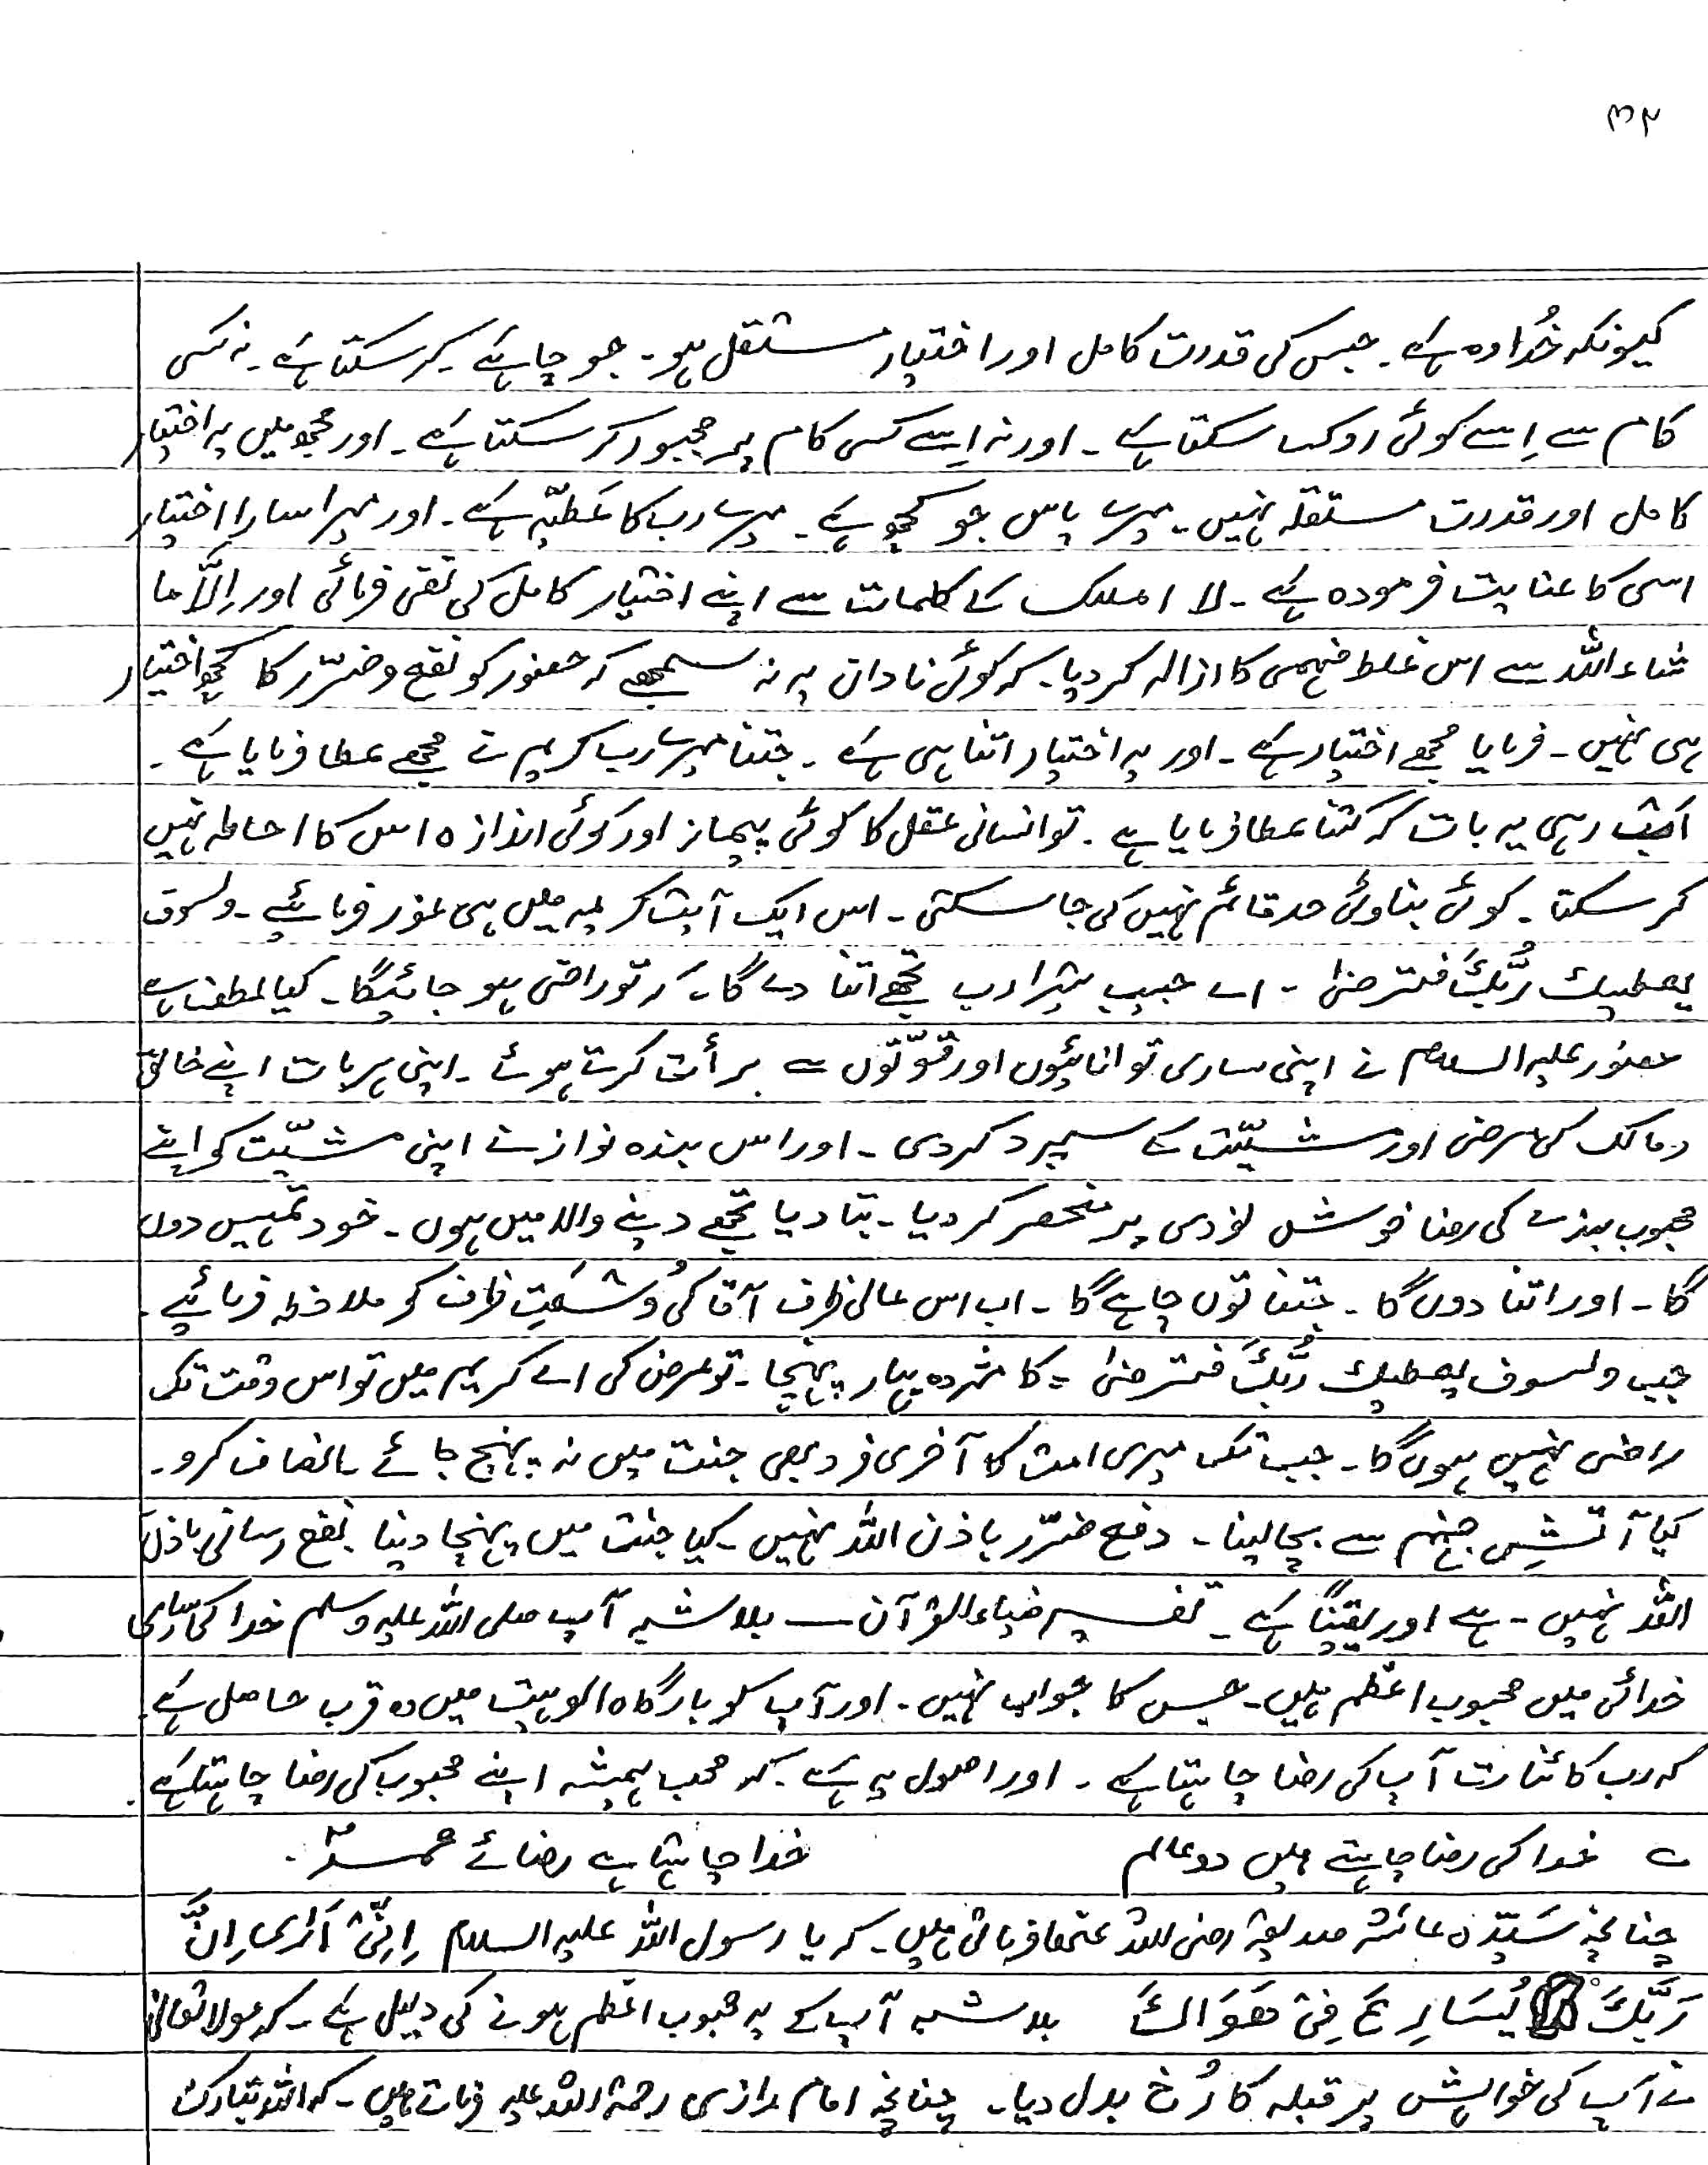 ۳۲
کیونکہ خُدا وہ ہے۔ جس کی قدرت کامل اور اختیار مستقل ہو۔ جو چاہے۔ کر سکتا ہے۔ نہ کسی
کام سے اِسے کوئی روک سکتا ہے۔ اور نہ اِسے کسی کام پر مجبور کر سکتا ہے۔ اور مجھ میں یہ اختیار
کامل اور قدرت مستقلہ نہیں۔ میرے پاس جو کچھ ہے۔ میرے رب کا عَطیّہ ہے۔ اور میرا سارا اختیار
اسی کا عنایت فرمودہ ہے۔ لا املک کے کلمات سے اپنے اختیار کامل کی نفی فرمائی اور اِلَّا ما
شاءاللّٰہ سے اس غلط فہمی کا ازالہ کر دیا۔ کہ کوئی نادان یہ نہ سمجھے کہ حضور کو نفع وضرّر کا کچھ اختیار
ہی نہیں۔ فرمایا مجھے اختیار ہے۔ اور یہ اختیار اتنا ہی ہے۔ جتنا میرے رب کریم نے مجھے عطا فرمایا ہے۔
اَب رہی یہ بات کہ کتنا عطا فرمایا ہے۔ تو انسانی عقل کا کوئی پیمانہ اور کوئی اندازہ اس کا احاطہ نہیں
کر سکتا۔ کوئی بناوٹی حد قائم نہیں کی جا سکتی۔ اس ایک آیت کریمہ میں ہی غور فرمائیے۔ ولسوف
یعطیک رَبُّکَ فترضیٰ۔ اے حبیب تیرا رب تجھے اتنا دے گا۔ کہ تو راضی ہو جائیگا۔ کیا لطف ہے
حضور علیہ السلام نے اپنی ساری توانائیوں اور قوّتوں سے برأت کرتے ہوئے۔ اپنی ہر بات اپنے خالق
و مالک کی مرضی اور مشیّت کے سپرد کر دی۔ اور اس بندہ نواز نے اپنی مشیّت کو اپنے
محبوب بندے کی رضا خوشنودی پر منحصر کر دیا۔ بتا دیا تجھے دینے والا میں ہوں۔ خود تمہیں دوں
گا۔ اور اتنا دوں گا۔ جتنا توں چاہے گا۔ اب اس عالی ظرف آقا کی وُسْعَتِ ظرف کو ملاحظہ فرمائیے۔
جب ولسوف یعطیک رَبُّکَ فترضیٰ۔ کا مژدہ بہار پہنچا۔ تو عرض کی اے کریم میں تو اس وقت تک
راضی نہیں ہوں گا۔ جب تک میری امت کا آخری فرد بھی جنت میں نہ پہنچ جائے۔ انصاف کرو۔
کیا آتشِ جہنم سے بچا لینا۔ دفع ضرّر باذن اللّٰہ نہیں۔ کیا جنت میں پہنچا دینا نفع رسانی باذن
اللّٰہ نہیں۔ ہے اور یقیناً ہے۔ تفسیر ضیاءالقرآن — بلا شبہ آپ صلی اللّٰہ علیہ وسلم خدا کی ساری
خدائی میں محبوب اعظم ہیں۔ جس کا جواب نہیں۔ اور آپ کو بارگاہ الوہیت میں وہ قرب حاصل ہے۔
کہ رب کائنات آپ کی رضا چاہتا ہے۔ اور اصول یہ ہے۔ کہ محب ہمیشہ اپنے محبوب کی رضا چاہتا ہے۔
؎ خدا کی رضا چاہتے ہیں دو عالم خدا چاہتا ہے رضائے محمدؐ۔
چنانچہ سَیّدہ عائشہ صدیقہ رضی اللّٰہ عنھا فرماتی ہیں۔ کہ یا رسول اللّٰہ علیہ السلام اِنِّیْ اَرٰی اِنَّ
رَبَّکَ یُسَارِعُ فِیْ ھَوَاکَ بلا شبہ آپ کے یہ محبوب اعظم ہونے کی دلیل ہے۔ کہ مولا تعالیٰ
نے آپ کی خواہش پر قبلہ کا رُخ بدل دیا۔ چنانچہ امام رازی رحمۃ اللّٰہ علیہ فرماتے ہیں۔ کہ اللّٰہ تبارک